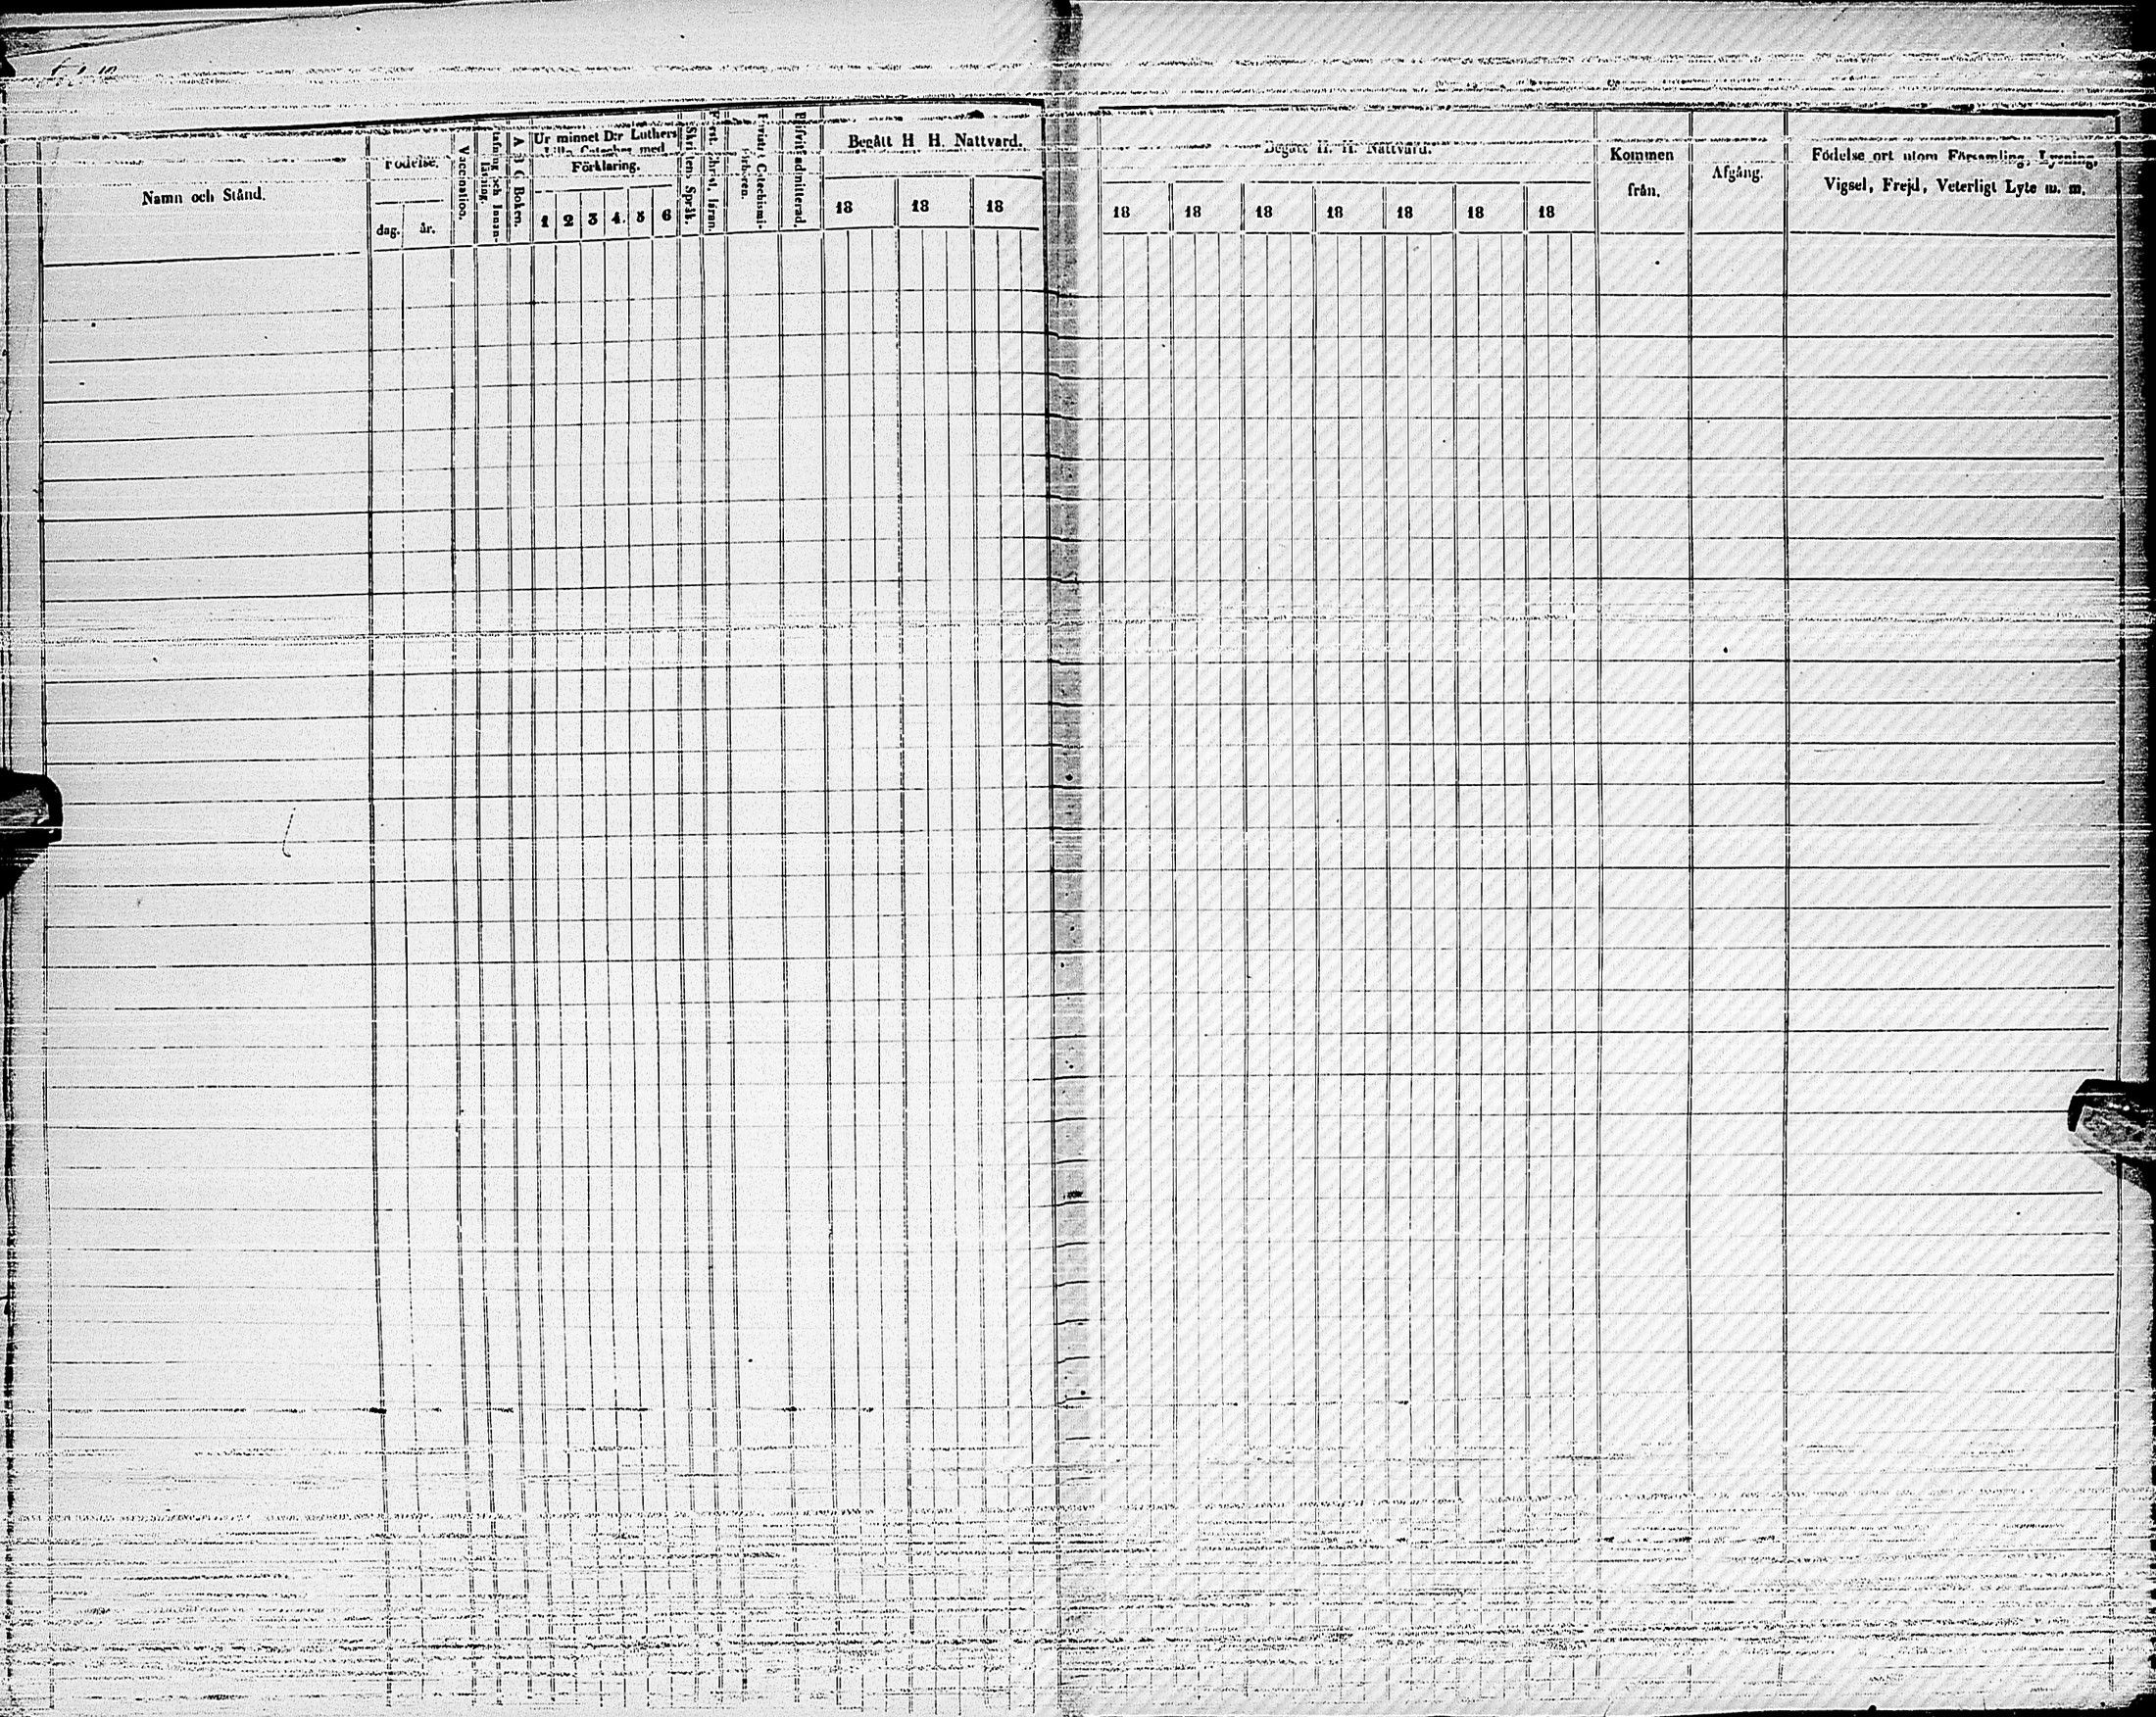 Namn och Stånd.
Födelse.
dag. år.
Vaccination.
Innan-
läsning.
A B C Boken.
Ur minnet D:r Luthers
Lilla Cateches med
Förklaring.
1 2 3 4. 5 6
Skriftens Språk.
Begått H H. Nattvard.
18 18 18
Begått H. H. Nattvard.
18 18 18 18 18 18 18
Kommen
från.
Afgång.
Födelse ort utom Församling, Lysning,
Vigsel, Frejd, Veterligt Lyte m. m.